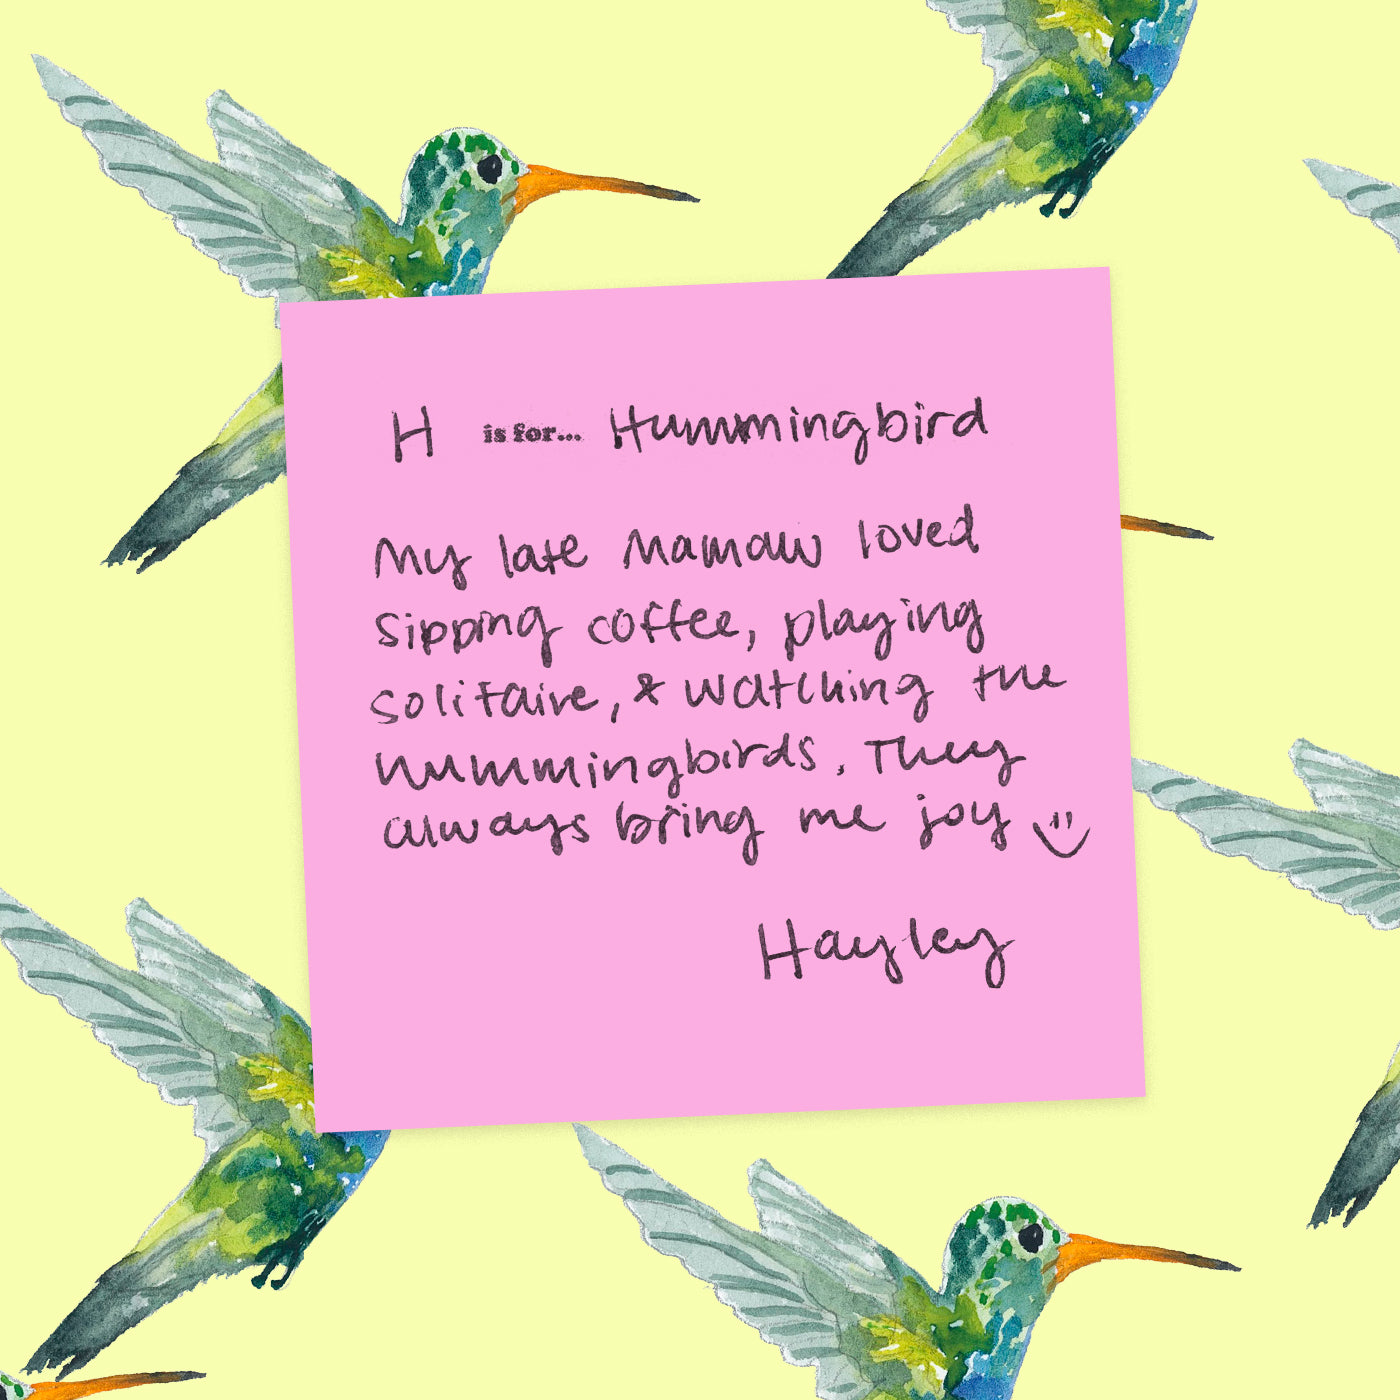 H is for... Hummingbird
My late Mamaw loved
sipping coffee, playing
solitaire, & watching the
hummingbirds. They
always bring me joy
Hayley